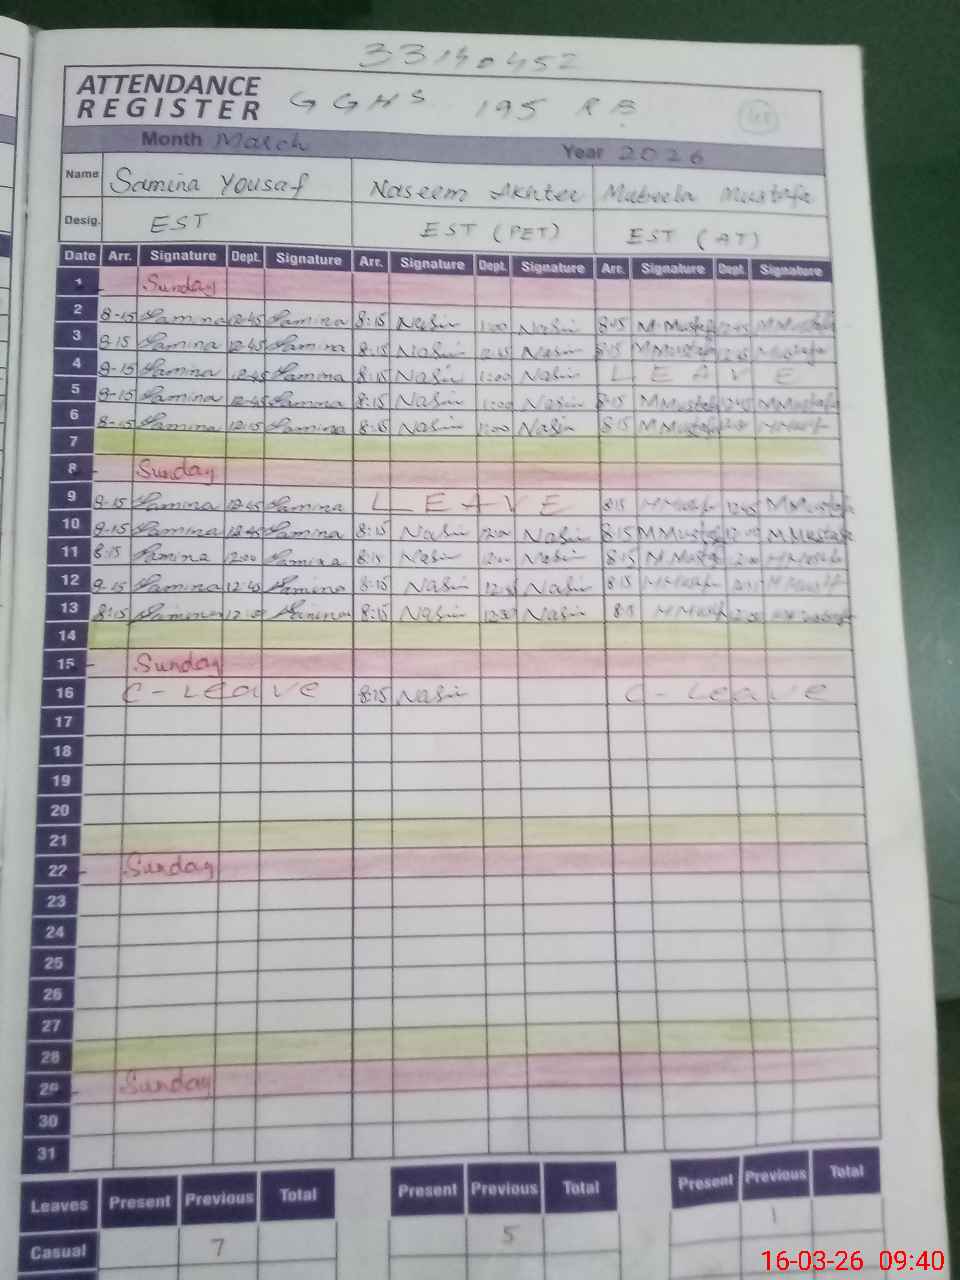 33140452
ATTENDANCE
REGISTER GGHS 195 RB
Month March Year 2026
Name Samina Yousaf Naseem Akhter Mustafa
Desig. EST EST (PET) EST (AT)
Date Arr. Signature Dept. Signature Arr. Signature Dept. Signature Arr. Signature Dept. Signature
1 Sunday
2 8-15 Samina 12:45 Samina 8:15 Nasim 1:00 Nasim 8:15 M Mustafa 12:45 M Mustafa
3 8-15 Samina 12:45 Samina 8:15 Nasim Nasim 8:15 M Mustafa 12:45 Mustafa
4 8-15 Samina 12:45 Samina 8:15 Nasim 1:00 Nasim LEAVE
5 8-15 Samina 12:45 Samina 8:15 Nasim 1:00 Nasim 8:15 M Mustafa 12:45 M Mustafa
6 8-15 Samina 12:15 Samina 8:15 Nasim 1:00 Nasim 8:15 M Mustafa
7
8 Sunday
9 8-15 Samina 12:45 Samina LEAVE 8:15 12:45 M Mustafa
10 8-15 Samina 12:45 Samina 8:15 Nasim Nasim 8:15 M Mustafa M Mustafa
11 8:15 Samina 12:00 Samina 8:15 Nasim Nasim 8:15 M Mustafa
12 8-15 Samina 12:45 Samina 8:15 Nasim Nasim 8:15
13 8:15 Samina Samina 8:15 Nasim 12:30 Nasim
14
15 Sunday
16 C-Leave 8:15 Nasim C-Leave
17
18
19
20
21
22 Sunday
23
24
25
26
27
28
29 Sunday
30
31
Leaves Present Previous Total Present Previous Total Present Previous Total
1
Casual 7 5
16-03-26 09:40